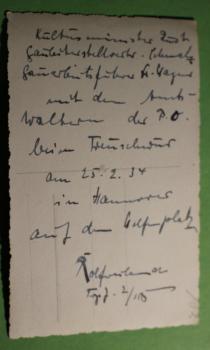 Kultusminister Rust
Gauleiterstellvertr. Schmalz
Gauarbeitsführer
mit den Amts-
waltern der P.O.
beim Treuschwur
am 25.2.34
in Hannover
auf dem Welfenplatz